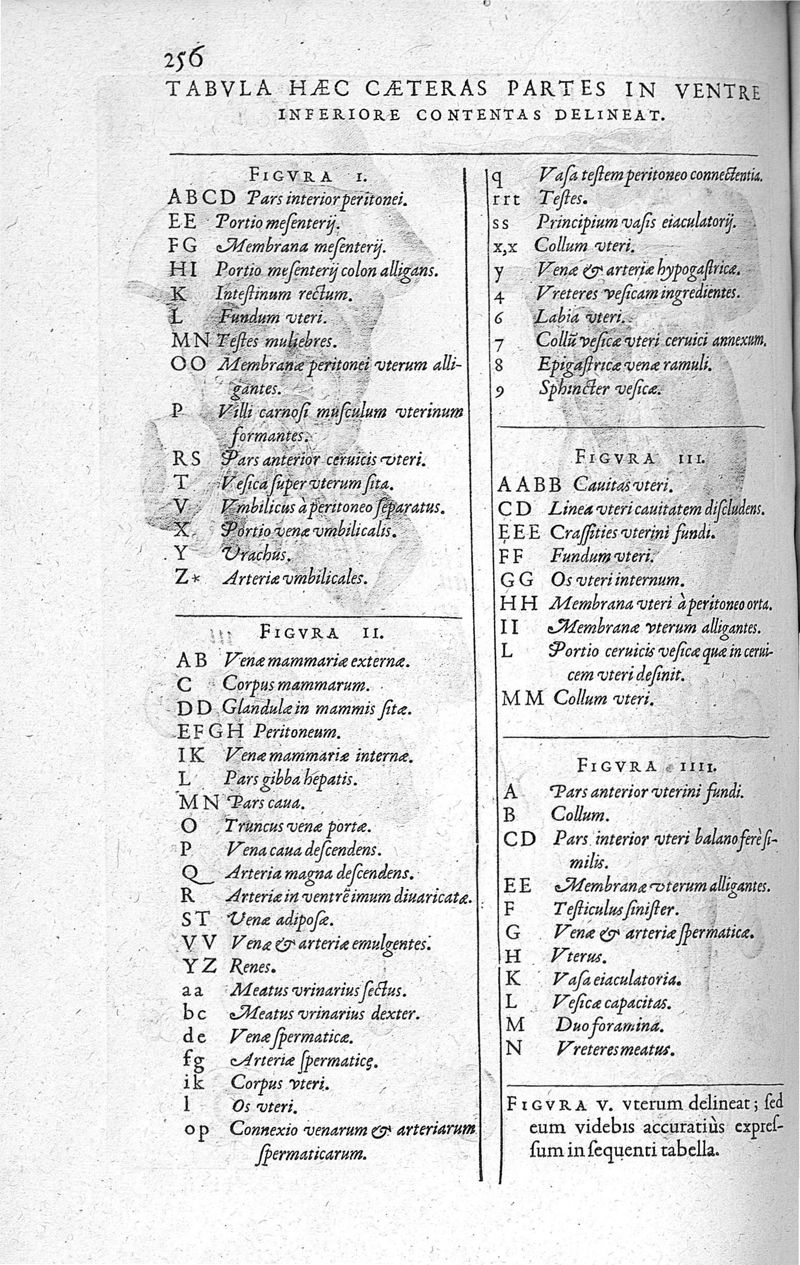 256
TABVLA HÆC CÆTERAS PARTES IN VENTRE
INFERIORE CONTENTAS DELINEAT.
FIGVRA I.
ABCD Pars interior peritonei.
EE Portio meſenterij.
FG Membrana meſenterij.
HI Portio meſenterij colon alligans.
K Inteſtinum rectum.
L Fundum vteri.
MN Teſtes muliebres.
OO Membranæ peritonei vterum alli-
gantes.
P Villi carnoſi muſculum vterinum
formantes.
RS Pars anterior ceruicis vteri.
T Veſica ſuper vterum ſita.
V Vmbilicus à peritoneo ſeparatus.
X Portio venæ vmbilicalis.
Y Vrachus.
Z* Arteriæ vmbilicales.
FIGVRA II.
AB Venæ mammariæ externæ.
C Corpus mammarum.
DD Glandulæ in mammis ſitæ.
EFGH Peritoneum.
IK Venæ mammariæ internæ.
L Pars gibba hepatis.
MN Pars caua.
O Truncus venæ portæ.
P Vena caua deſcendens.
Q Arteria magna deſcendens.
R Arteriæ in ventrē imum diuaricatæ.
ST Venæ adipoſæ.
VV Venæ & arteriæ emulgentes.
YZ Renes.
aa Meatus vrinarius ſectus.
bc Meatus vrinarius dexter.
de Venæ ſpermaticæ.
fg Arteriæ ſpermaticę.
ik Corpus vteri.
l Os vteri.
op Connexio venarum & arteriarum
ſpermaticarum.
q Vaſa teſtem peritoneo connectentia.
rrt Teſtes.
ss Principium vaſis eiaculatorij.
x,x Collum vteri.
y Venæ & arteriæ hypogaſtricæ.
4 Vreteres veſicam ingredientes.
6 Labia vteri.
7 Collū veſicæ vteri ceruici annexum.
8 Epigaſtricæ venæ ramuli.
9 Sphincter veſicæ.
FIGVRA III.
AABB Cauitas vteri.
CD Linea vteri cauitatem diſcludens.
EEE Craſſities vterini fundi.
FF Fundum vteri.
GG Os vteri internum.
HH Membrana vteri à peritoneo orta.
II Membranæ vterum alligantes.
L Portio ceruicis veſicæ quæ in cerui-
cem vteri deſinit.
MM Collum vteri.
FIGVRA IIII.
A Pars anterior vterini fundi.
B Collum.
CD Pars interior vteri balano ferè ſi-
milis.
EE Membranæ vterum alligantes.
F Teſticulus ſiniſter.
G Venæ & arteriæ ſpermaticæ.
H Vterus.
K Vaſa eiaculatoria.
L Veſicæ capacitas.
M Duo foramina.
N Vreteres meatus.
FIGVRA V. vterum delineat; ſed
eum videbis accuratiùs expreſ-
ſum in ſequenti tabella.